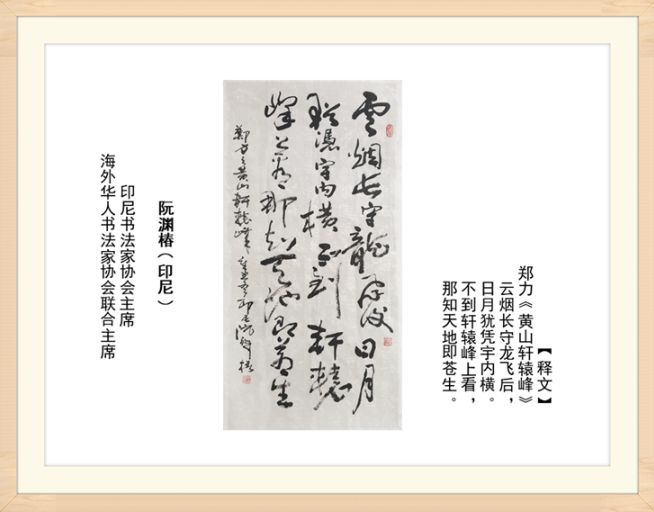 【释文】
郑力《黄山轩辕峰》
云烟长守龙飞后，
日月犹凭宇内横。
不到轩辕峰上看，
那知天地即苍生。
雲烟长守龍飛后日月
犹憑宇内横不到轩辕
峰上看那知天地即苍生
阮渊椿（印尼）
印尼书法家协会主席
海外华人书法家协会联合主席